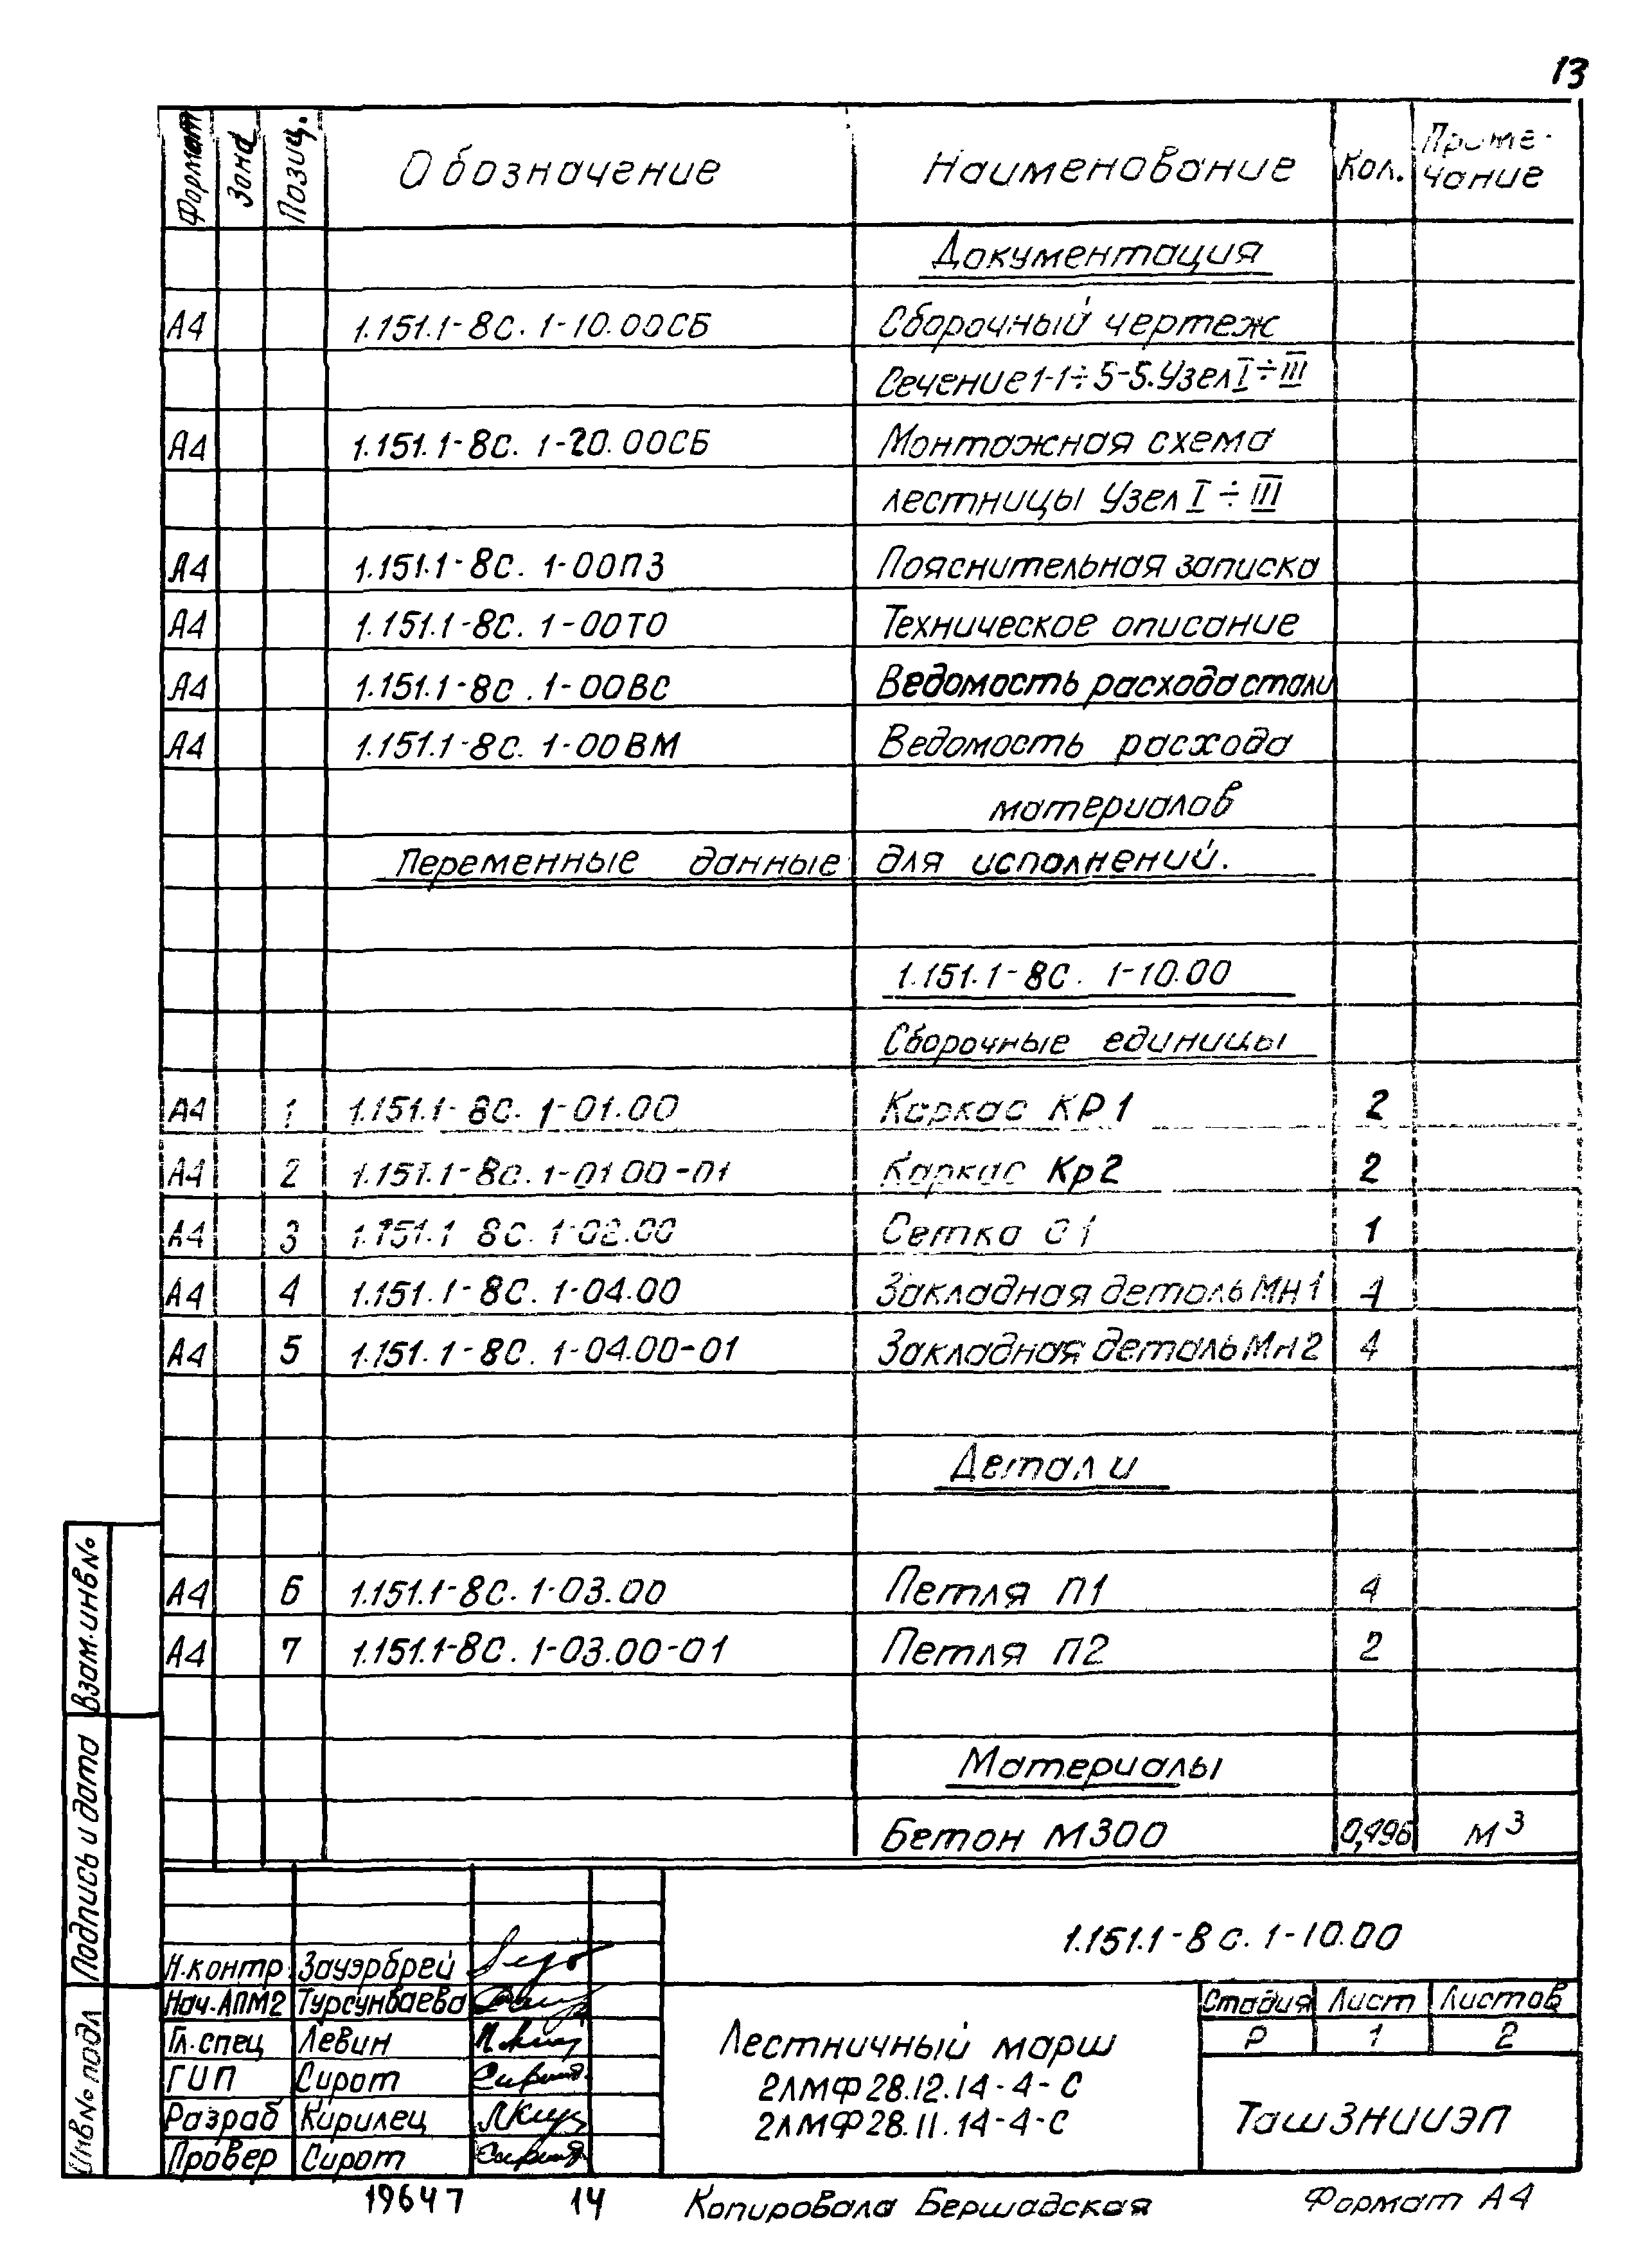 13
Формат Зона Позиц. Обозначение Наименование Кол. Приме-
чание
Документация
А4 1.151.1-8С. 1-10.00СБ Сборочный чертеж
Сечение1-1÷5-5.Узел I÷III
А4 1.151.1-8С. 1-20.00СБ Монтажная схема
лестницы Узел I÷III
А4 1.151.1-8С. 1-00ПЗ Пояснительная записка
А4 1.151.1-8С. 1-00ТО Техническое описание
А4 1.151.1-8С. 1-00ВС Ведомость расхода стали
А4 1.151.1-8С. 1-00ВМ Ведомость расхода
материалов
Переменные данные для исполнений.
1.151.1-8С. 1-10.00
Сборочные единицы
А4 1 1.151.1-8С. 1-01.00 Каркас КР1 2
А4 2 1.151.1-8С. 1-01 00-01 Каркас Кр2 2
А4 3 1.151.1 8С. 1-02.00 Сетка С1 1
А4 4 1.151.1-8С. 1-04.00 Закладная деталь МН1 4
А4 5 1.151.1-8С. 1-04.00-01 Закладная деталь Мн2 4
Детали
А4 6 1.151.1-8С. 1-03.00 Петля П1 4
А4 7 1.151.1-8С. 1-03.00-01 Петля П2 2
Материалы
Бетон М300 0,496 м³
Взам.инв№
Подпись и дата
Инв№ подл
1.151.1-8с. 1-10.00
Н.контр. Зауэрбрей
Нач.АПМ2 Турсунбаева
Гл.спец Левин
ГИП Сирот
Разраб Кирилец
Провер Сирот
Лестничный марш
2ЛМФ28.12.14-4-С
2ЛМФ28.11.14-4-С
Стадия Лист Листов
Р 1 2
ТашЗНИИЭП
19647 14 Копировала Бершадская Формат А4